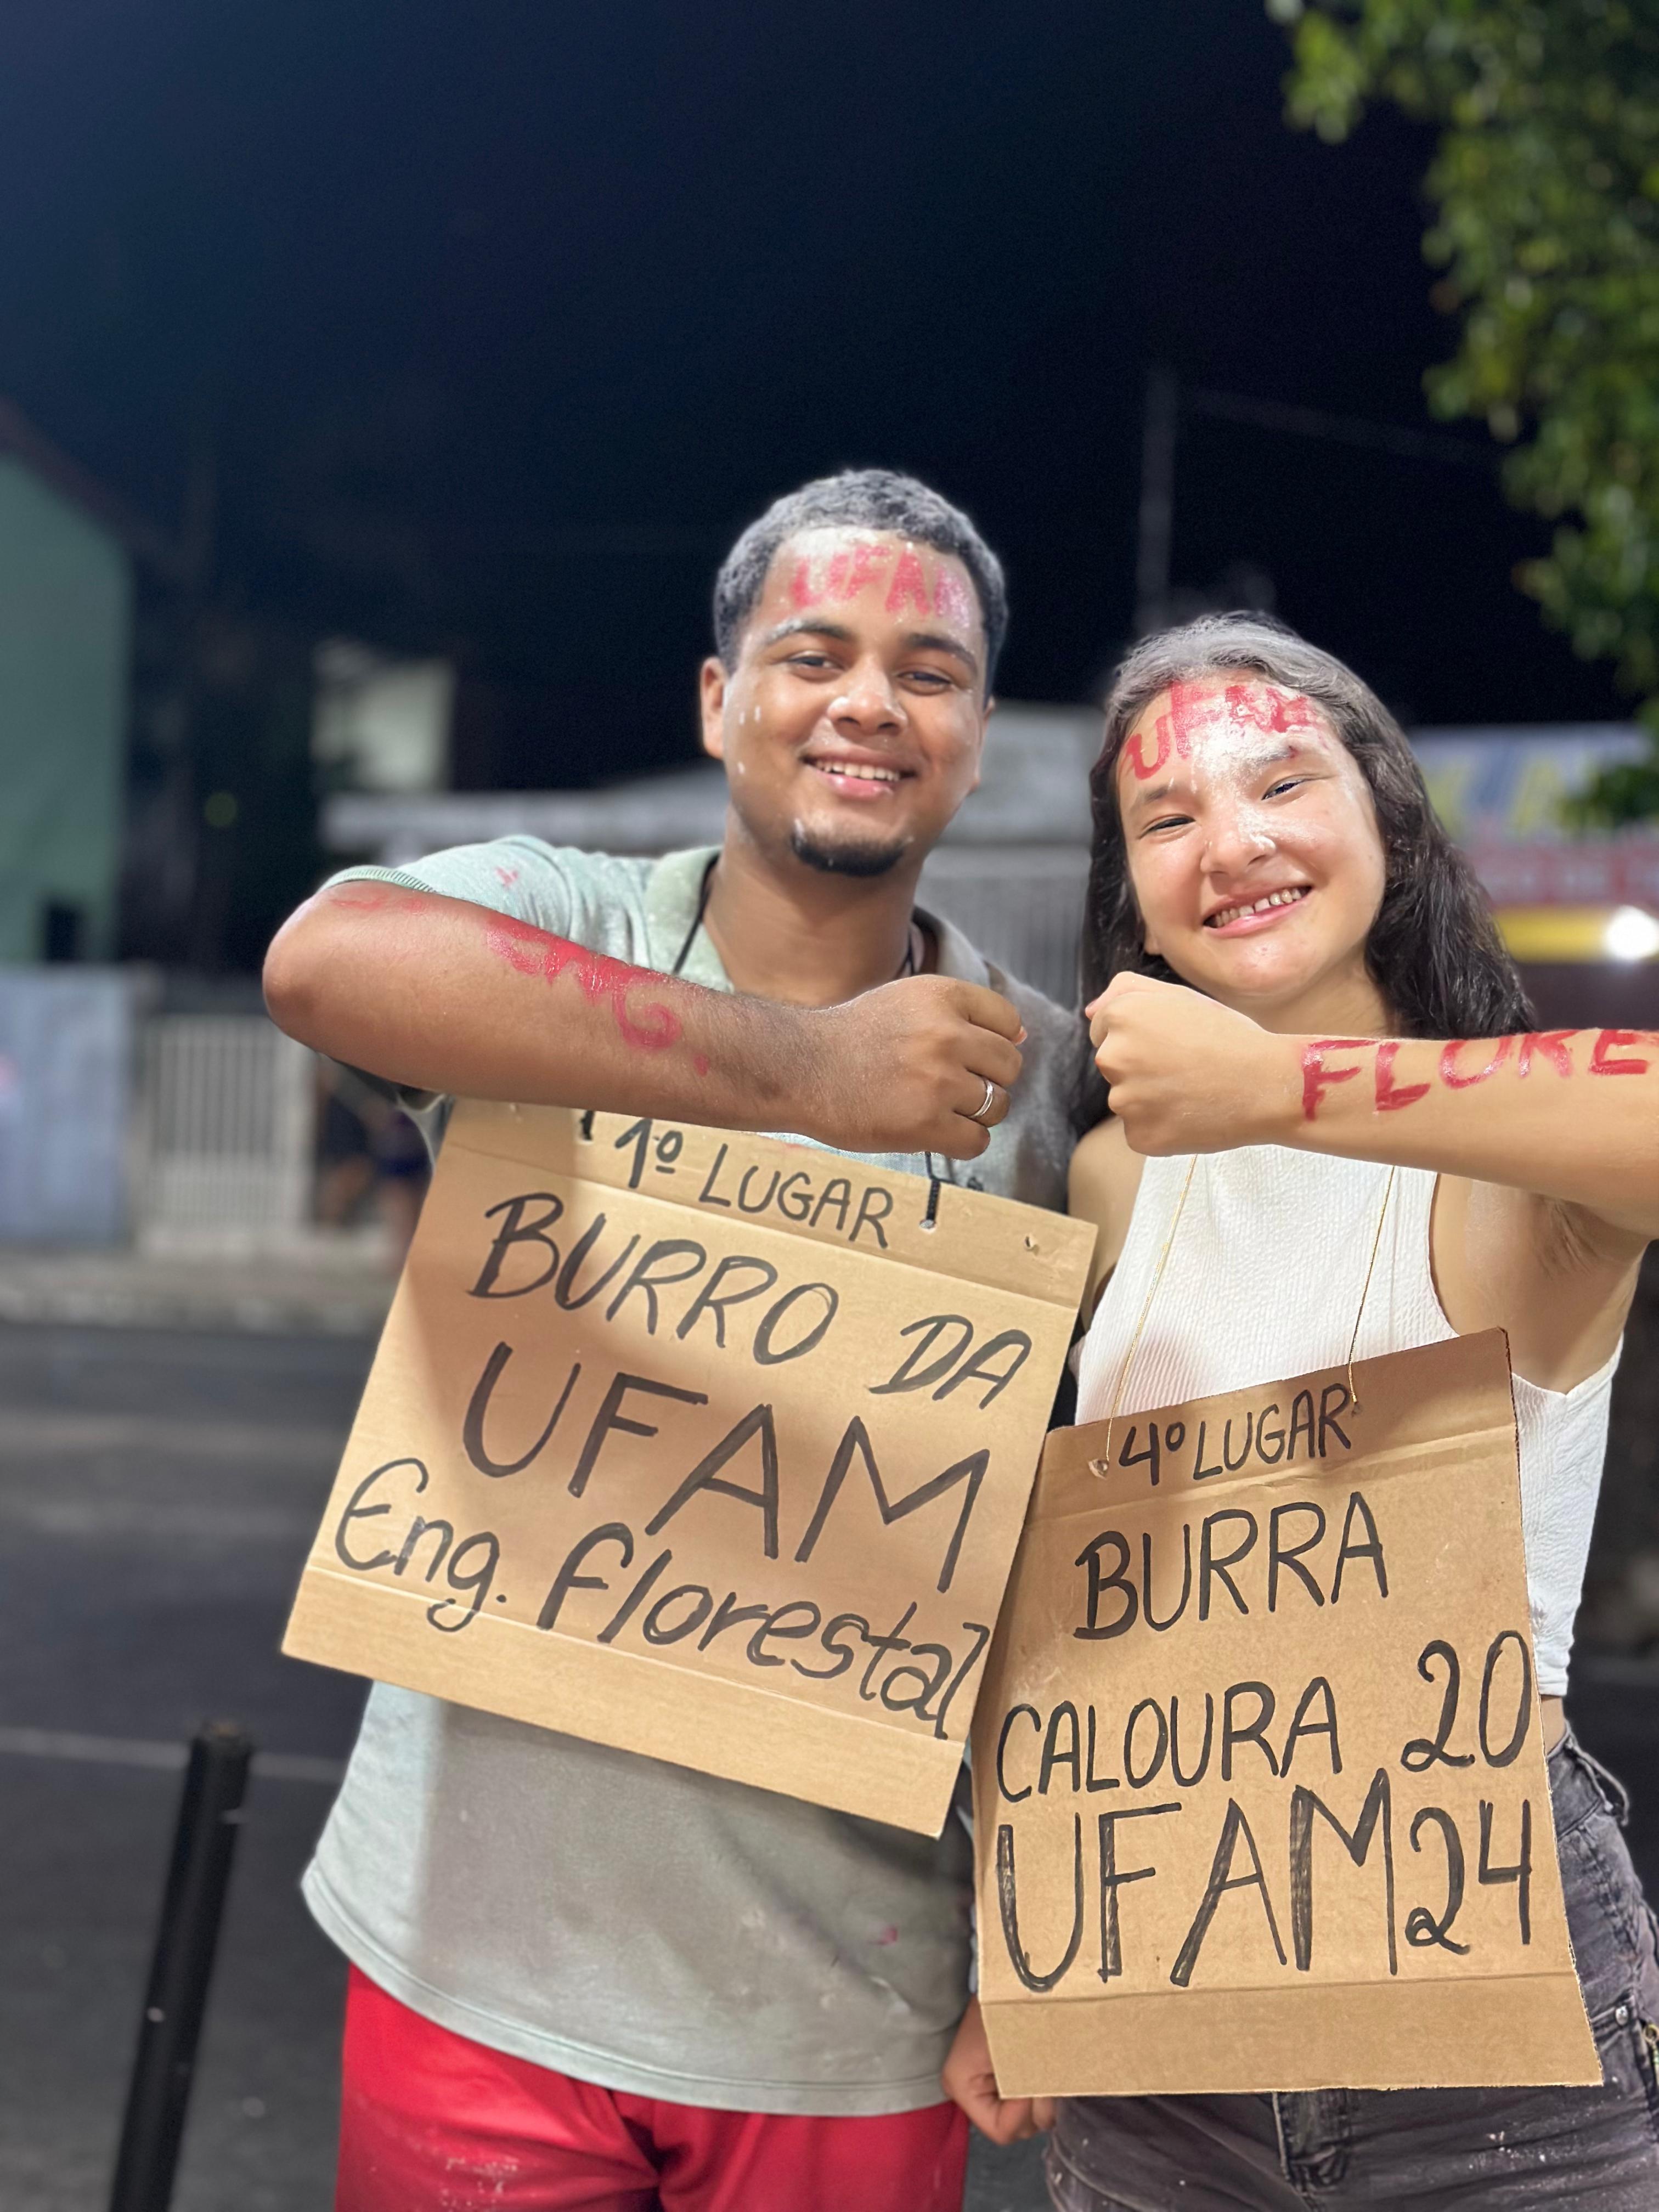 UFAM
UFAM
ENG.
FLORE
1º LUGAR
BURRO DA
UFAM
Eng. Florestal
4º LUGAR
BURRA
CALOURA 20
UFAM 24